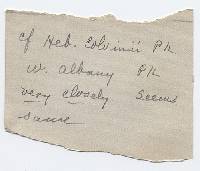 cf Heb. Colvinii Pk
W. Albany Pk
very closely seems
same